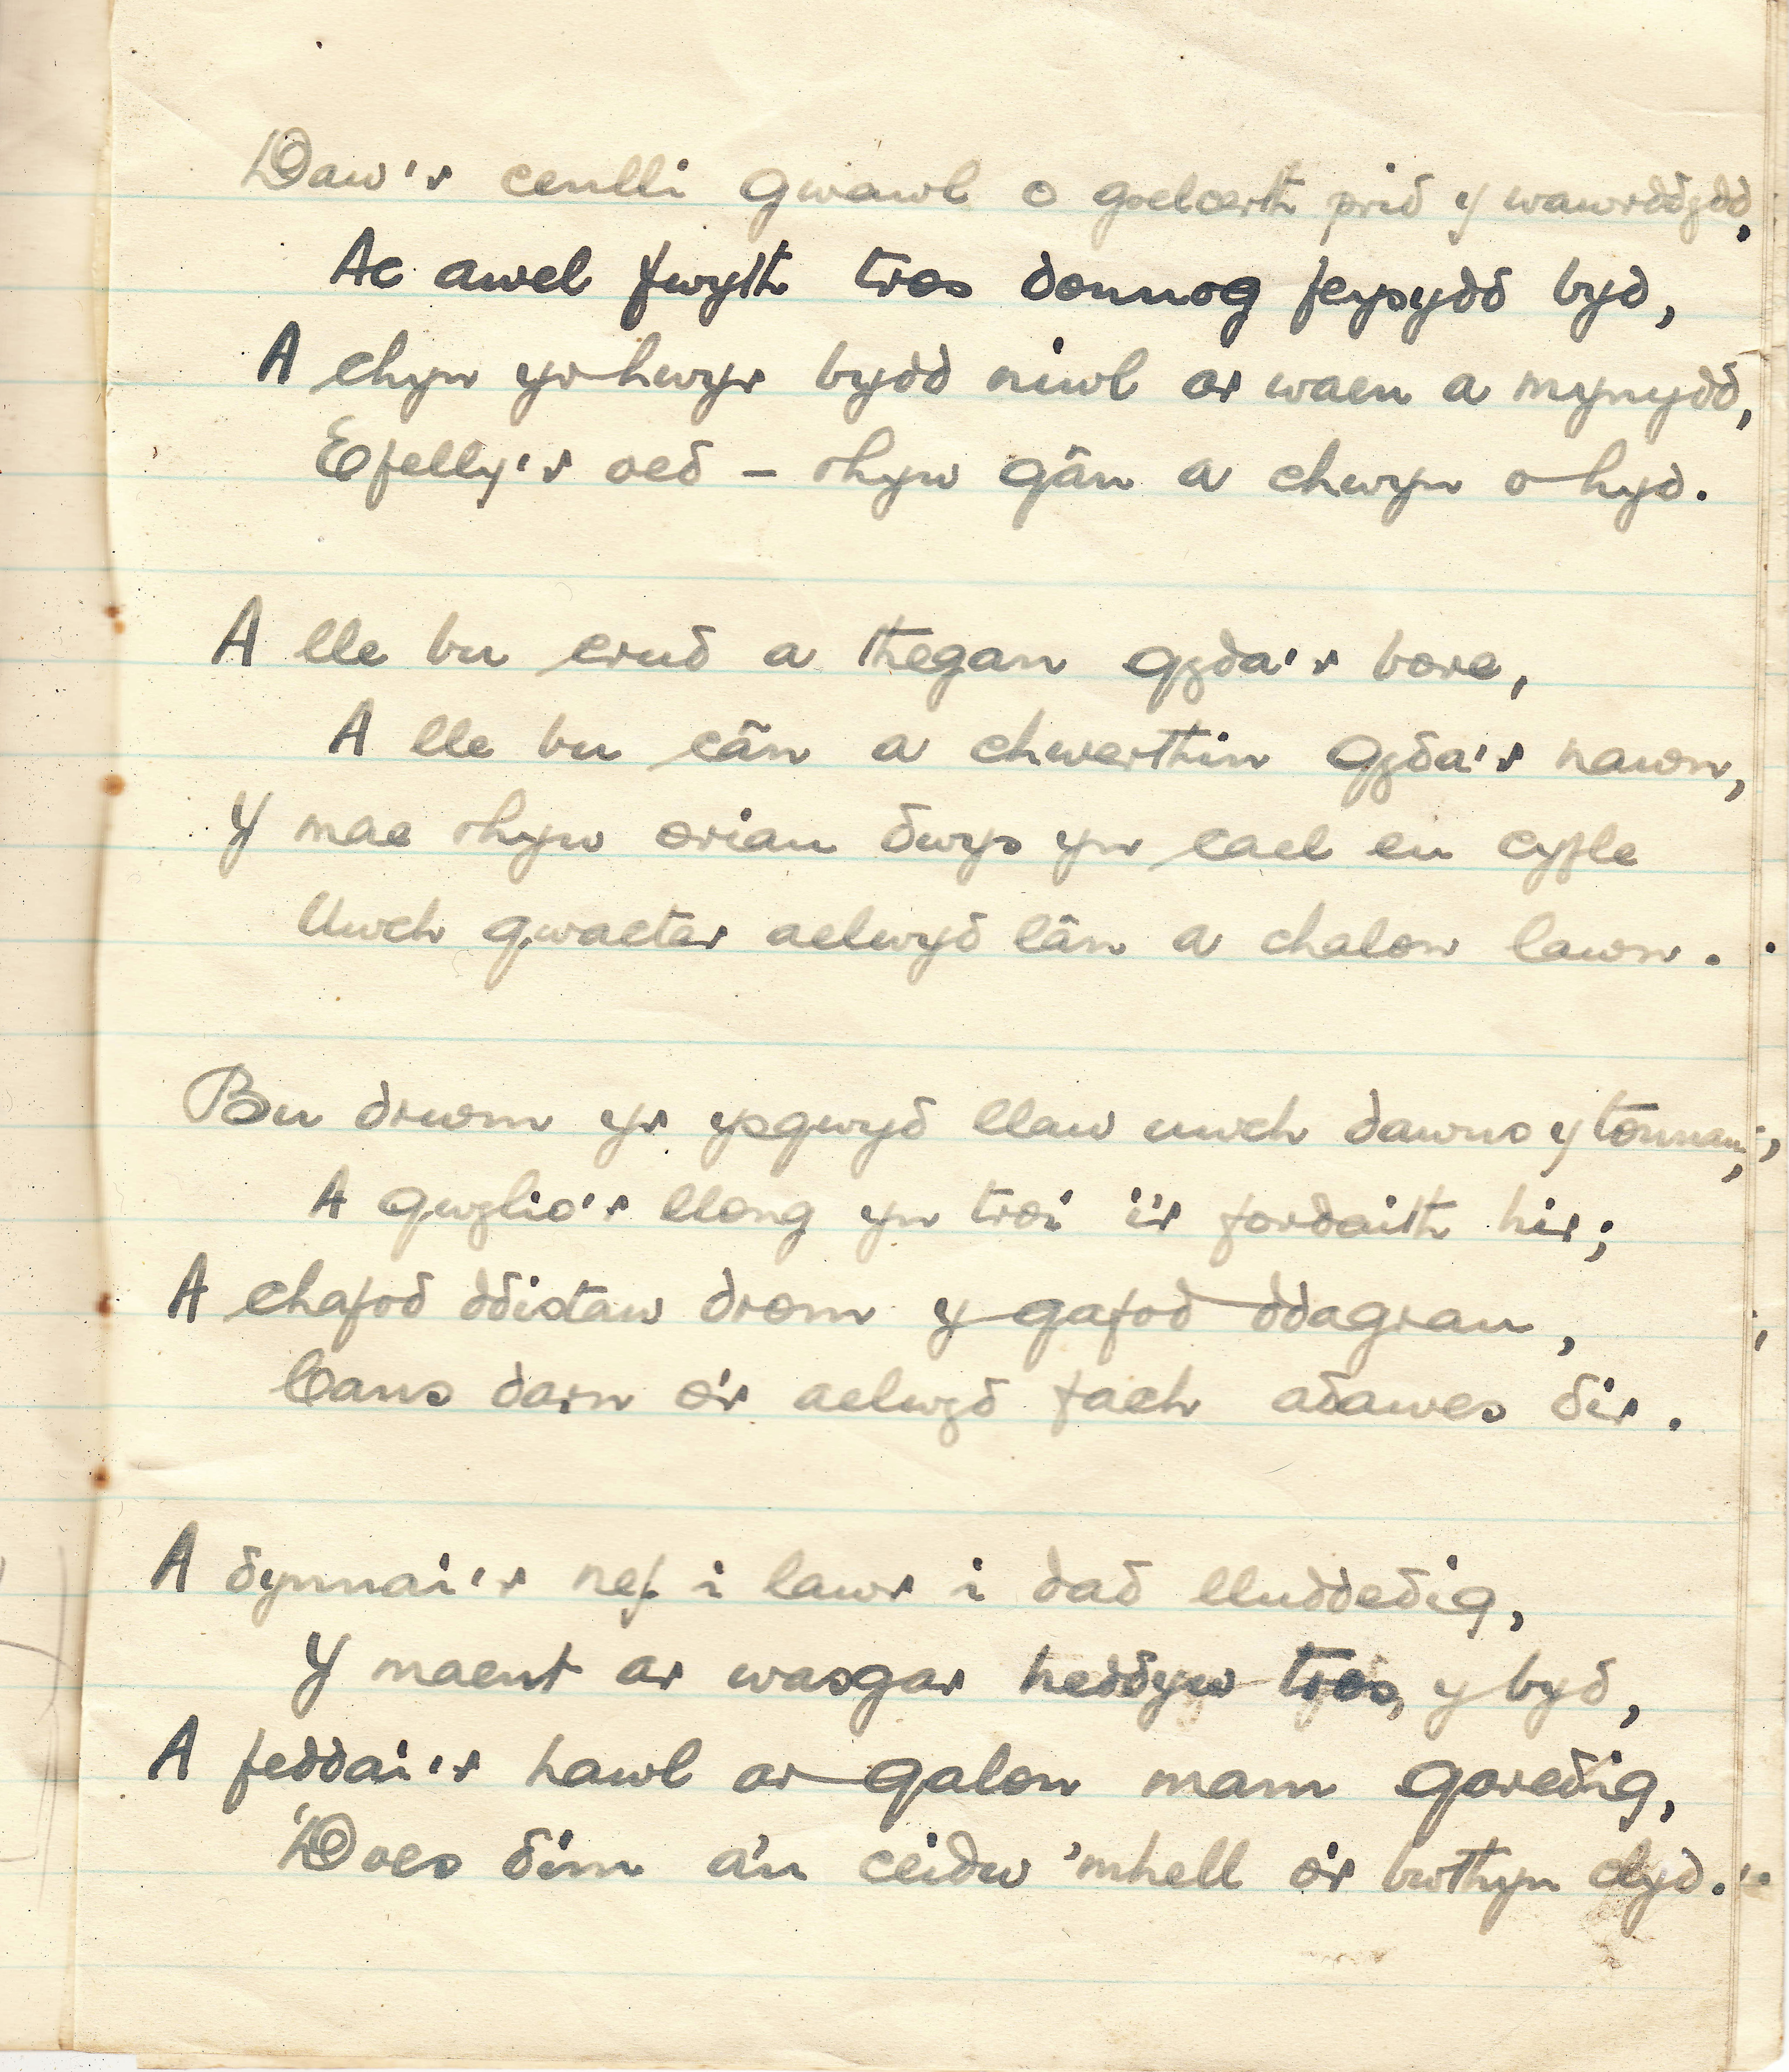 Daw'r cenlli gwawl o goelcerth prid y wawrddydd,
Ac awel fwyth tros donnog feysydd byd,
A chyn yr hwyr bydd niwl ar waen a mynydd,
Efelly'r oed – rhyw gân a chwyn o hyd.
A lle bu crud a thegan gyda'r bore,
A lle bu cân a chwerthin gyda'r nawn,
Y mae rhyw oriau dwys yn cael eu cyfle
Uwch gwacter aelwyd lân a chalon lawn.
Bu drwm yr ysgwyd llaw uwch dawns y tonnau;
A gwylio'r llong yn troi i'r fordaith hir;
A chafod ddistaw drom y gafod ddagrau,
Cans darn o'r aelwyd fach adawes dir.
A dynnai'r nef i lawr i dad lluddedig,
Y maent ar wasgar heddyw tros y byd,
A feddai'r hawl ar galon mam garedig,
'Does dim a'u ceidw 'mhell o'r bwthyn clyd."